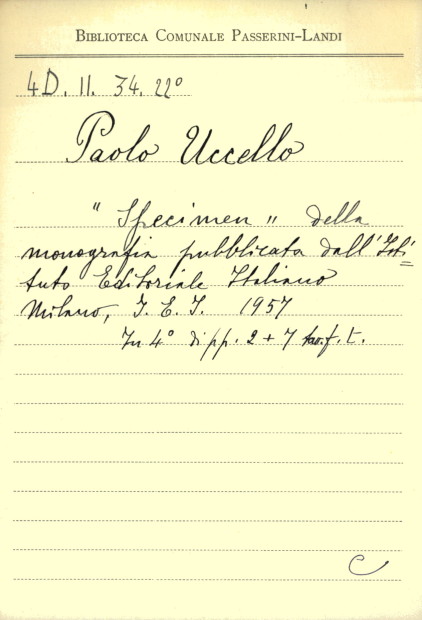 Biblioteca Comunale Passerini-Landi
4D. II. 34. 22°
Paolo Uccello
"Specimen" della
monografia pubblicata dall'Isti=
tuto Editoriale Italiano
Milano, I. E. I. 1957
In 4° di pp. 2 + 7 tav. f. t.
C